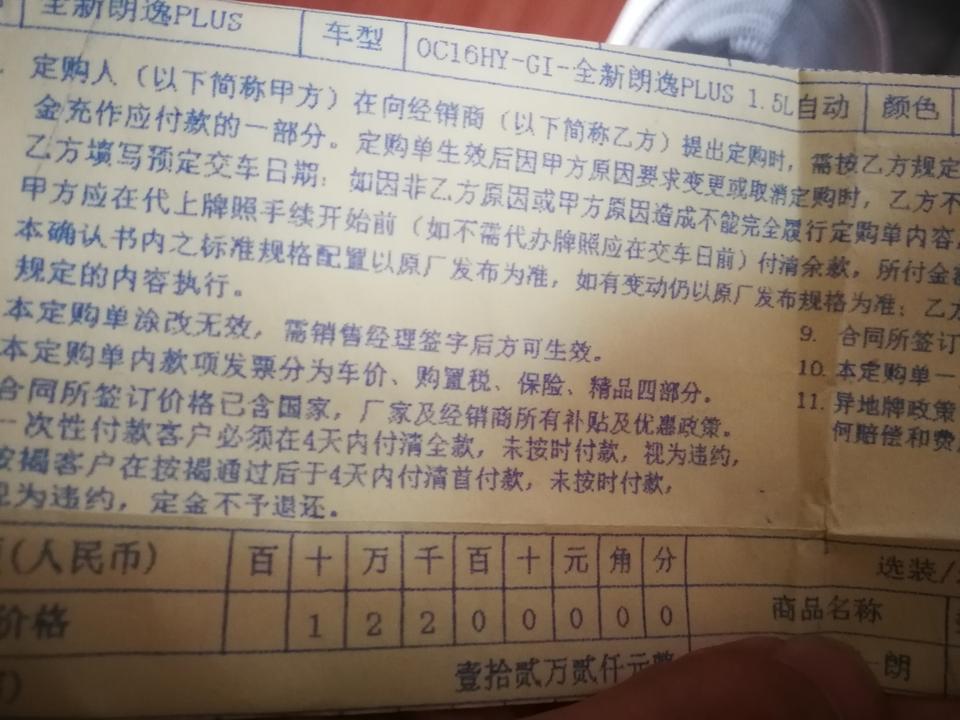 全新朗逸PLUS 车型 OC16HY-GI-全新朗逸PLUS 1.5L自动 颜色
定购人（以下简称甲方）在向经销商（以下简称乙方）提出定购时，需按乙方规定
金充作应付款的一部分。定购单生效后因甲方原因要求变更或取消定购时，乙方不
乙方填写预定交车日期：如因非乙方原因或甲方原因造成不能完全履行定购单内容，
甲方应在代上牌照手续开始前（如不需代办牌照应在交车日前）付清余款，所付金
本确认书内之标准规格配置以原厂发布为准，如有变动仍以原厂发布规格为准；乙方
规定的内容执行。
本定购单涂改无效，需销售经理签字后方可生效。
本定购单内款项发票分为车价、购置税、保险、精品四部分。
合同所签订价格已含国家，厂家及经销商所有补贴及优惠政策。
一次性付款客户必须在4天内付清全款，未按时付款，视为违约，
按揭客户在按揭通过后于4天内付清首付款，未按时付款，
视为违约，定金不予退还。
9. 合同所签订
10. 本定购单一
11. 异地牌政策
何赔偿和费
(人民币) 百 十 万 千 百 十 元 角 分 选装/
价格 1 2 2 0 0 0 0 0 商品名称
壹拾贰万贰仟元整 朗